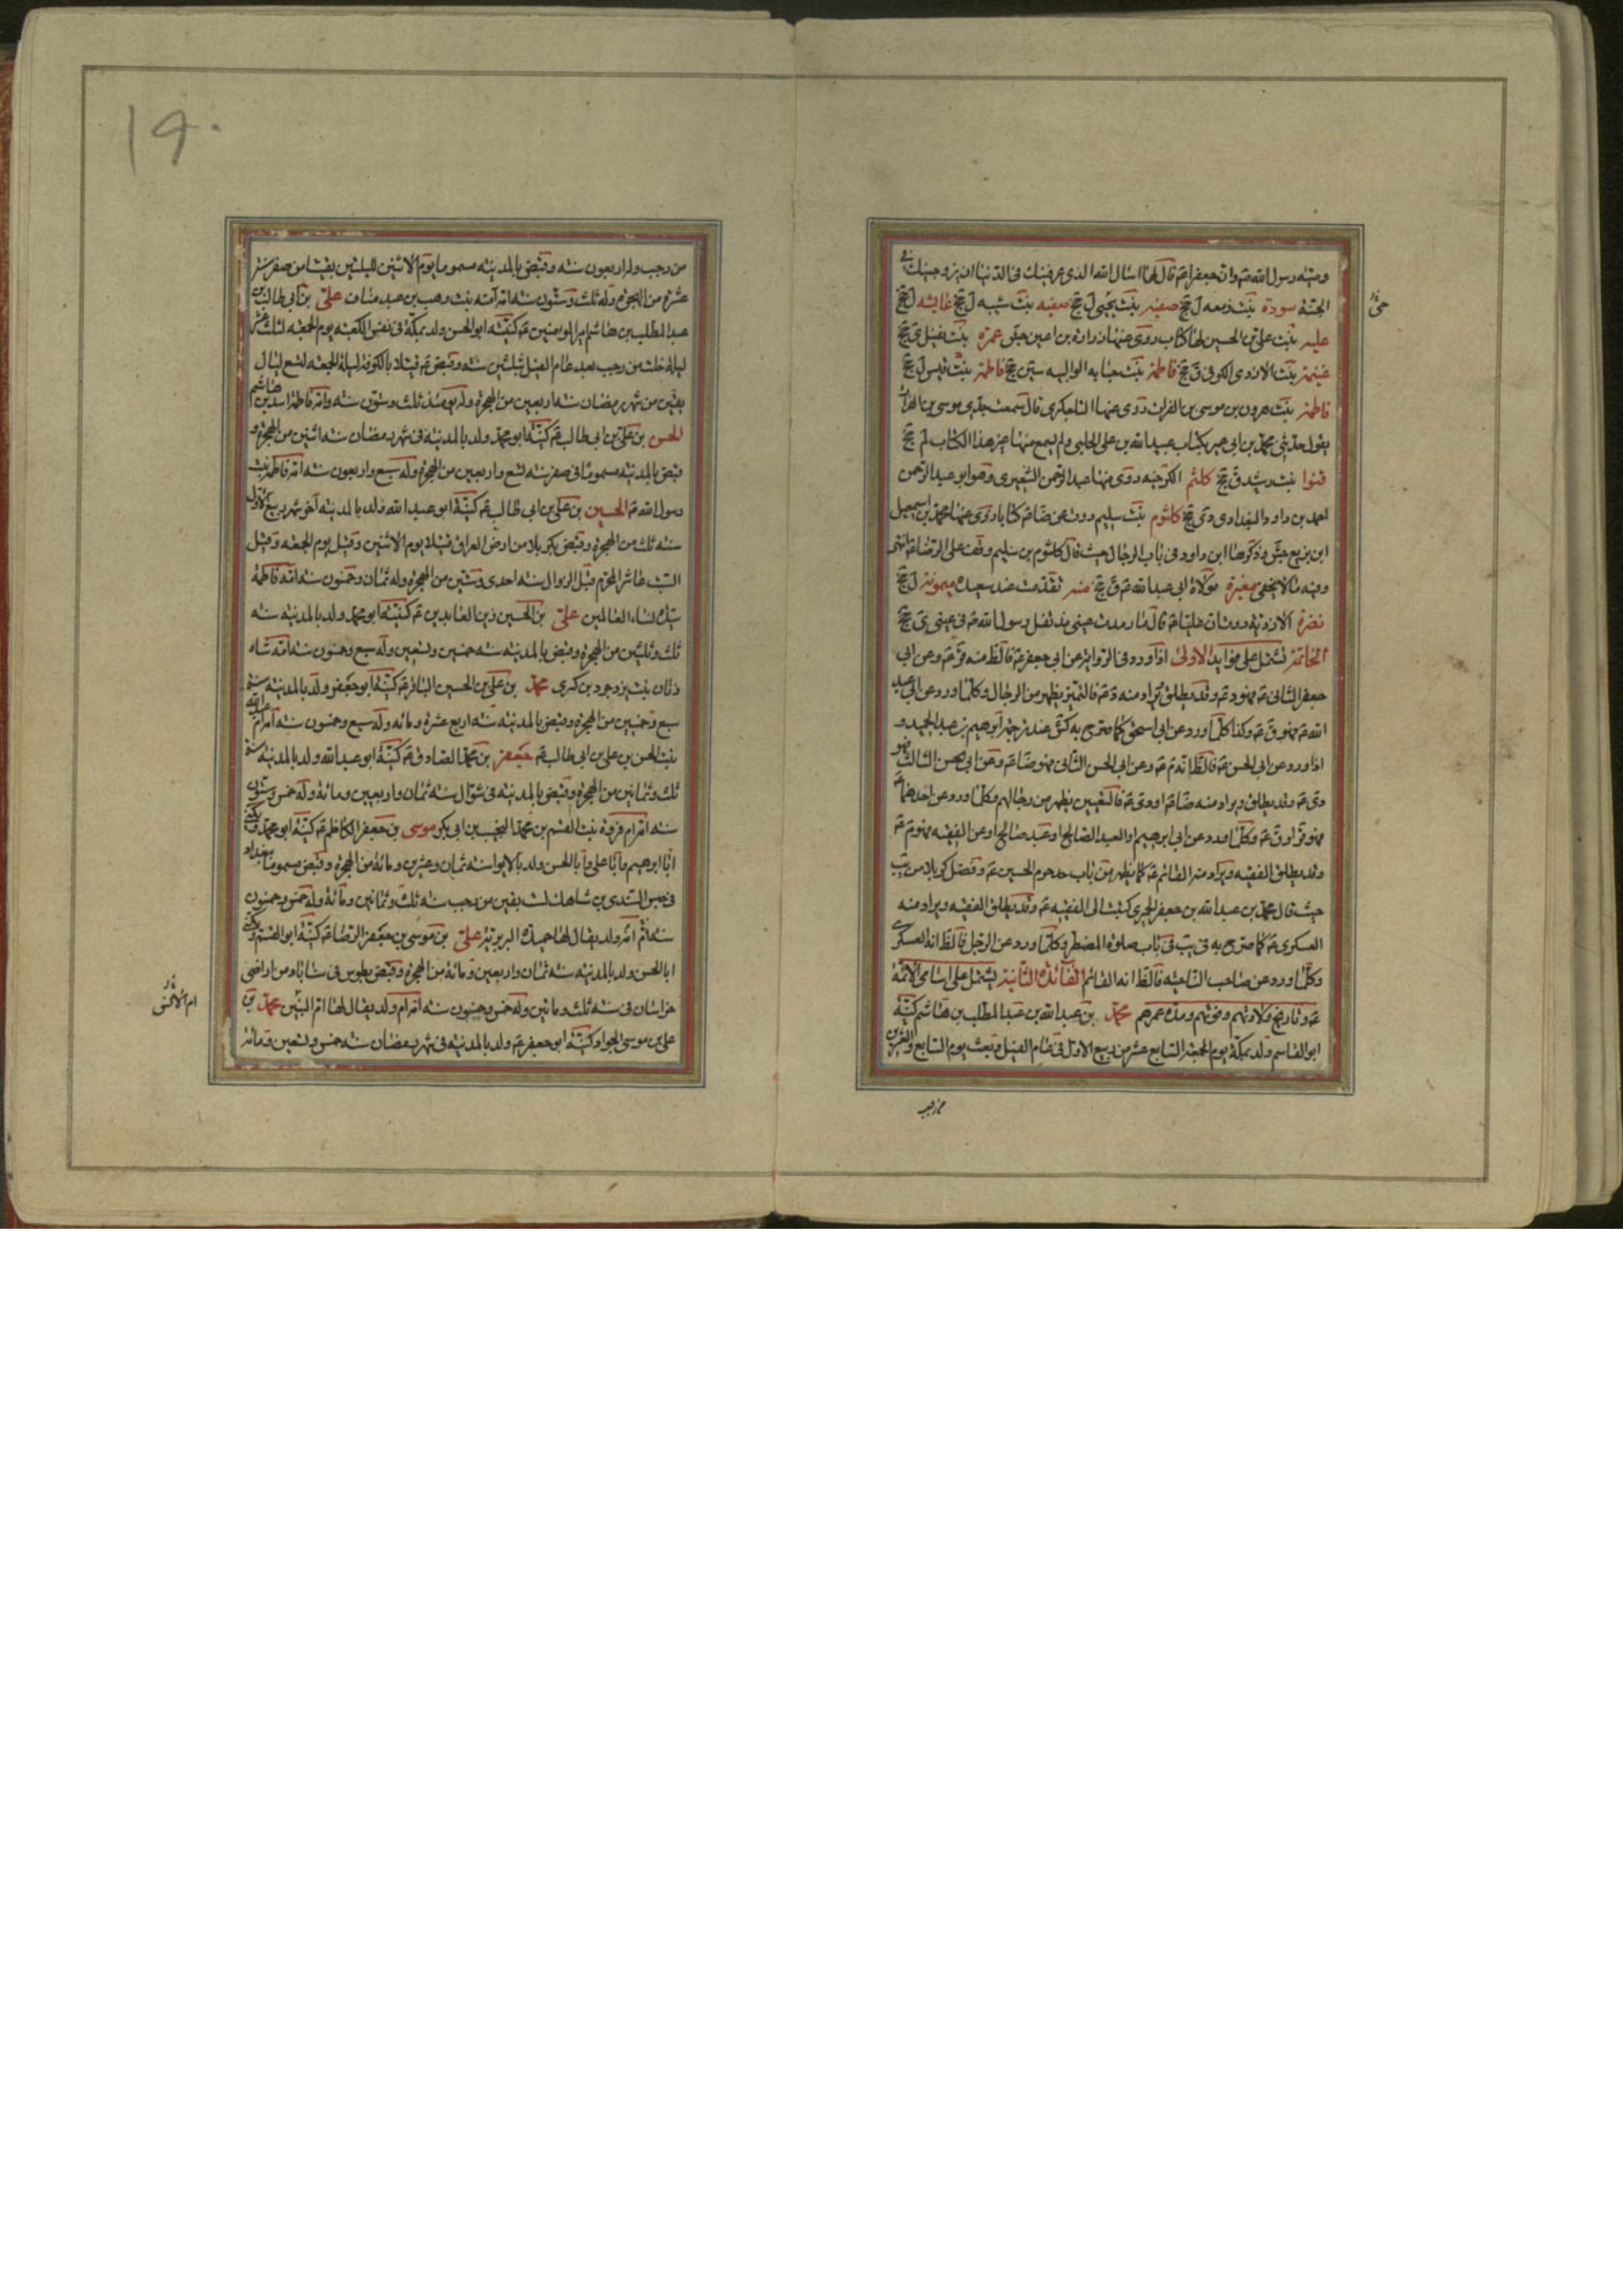 وصيته رسول الله ص وان جعفرا ع قال لها اسال الله الذي عرفنيك في الدنيا ان يزوجنيك في
الجنة سودة بنت زمعه ل جخ صفيه بنت يحيى ل جخ صفيه بنت شيبه ل جخ عايشه ل جخ
عليه بنت علي بن الحسين لها كتاب روى عنها زرارة بن اعين جش عمرة بنت نفيل ى جخ
غنيمة بنت الازدى الكوفى ق جخ فاطمة بنت حبابه الوالبيه سين جخ فاطمة بنت قيس ل جخ
فاطمة بنت هرون بن موسى بن الفرات روى عنها التلعكبرى قال سمعت جدى موسى بن الفرات
يقول حدثنى محمد بن ابى عمير بكتاب عبيد الله بن على الحلبى ولم يسمع منها غير هذا الكتاب لم جخ
قنوا بنت رشيد ق جخ كلثم الكرخيه روى عنها عبد الرحمن الشعيرى وهو ابو عبد الرحمن
احمد بن داود البغدادى دى جخ كلثوم بنت سليم روت عن ضا ع كتابا روى عنها محمد بن اسمعيل
ابن بزيع جش وذكرها ابن داود فى باب الرجال حيث قال كلثوم بن سليم وقف على الرضا ع انتهى
وفيه ما لا يخفى مغيرة مولاة ابى عبد الله ع ق جخ منه تقدمت عند سعيده ميمونة ل جخ
نضرة الازدية روت ان عليا ع قال ما رمدت عينى مذ تفل رسول الله ص فى عينى ى جخ
الخاتمة تشتمل على فوايد الاولى اذا ورد فى الرواية عن ابى جعفر ع فالظ منه قر ع وعن ابى
جعفر الثانى ع فهو د ع وقد يطلق يراد منه د ع فالتميز يظهر من الرجال وكلما ورد عن ابى عبد
الله ع فهو ق ع وكذا كلما ورد عن ابى اسحق كما صرح به كش عند ترجمة ابرهيم بن عبد الحميد و
اذا ورد عن ابى الحسن ع فالظ انه م ع وعن ابى الحسن الثانى فهو ضا ع وعن ابى الحسن الثالث فهو
دى ع وقد يطلق ويراد منه ضا ع او دى ع فالتعيين يظهر من رجالهم وكلما ورد عن احدهما ع
فهو قر او ق ع وكلما ورد عن ابى ابرهيم او العبد الصالح او عبد صالح او عن الفقيه فهو م ع
وقد يطلق الفقيه ويراد منه القائم ع كما يظهر من باب حد حرم الحسين ع وفضل كربلا من يب
حيث قال محمد بن عبد الله بن جعفر الحميرى كتبت الى الفقيه ع وقد يطلق الفقيه ويراد منه
العسكرى ع كما صرح به فى يب فى باب صلوة المضطر وكلما ورد عن الرجل فالظ انه العسكرى
وكلما ورد عن صاحب الناحيه فالظ انه القائم الفائدة الثانية يشتمل على اسامى الائمة
ع وتاريخ ولادتهم وفوتهم ومدة عمرهم محمد بن عبد الله بن عبد المطلب بن هاشم كنيته
ابو القاسم ولد بمكة يوم الجمعة السابع عشر من ربيع الاول فى عام الفيل وبعث يوم السابع والعشرين
من رجب
من رجب وله اربعون سنه وقبض بالمدينه مسموما يوم الاثنين لليلتين بقيتا من صفر سنه
عشرة من الهجرة وله ثلث وستون سنه امه آمنه بنت وهب بن عبد مناف على بن ابى طالب بن
عبد المطلب بن هاشم امير المومنين ع كنيته ابو الحسن ولد بمكة فى نفس الكعبه يوم الجمعه لثلث عشر
ليلة خلت من رجب بعد عام الفيل بثلثين سنه وقبض ع قتيلا بالكوفة ليلة الجمعه لتسع ليال
بقين من شهر رمضان سنه اربعين من الهجرة وله يومئذ ثلث وستون سنه وامه فاطمة اسد بن هاشم
الحسن بن على بن ابى طالب ع كنيته ابو محمد ولد بالمدينه فى شهر رمضان سنه اثنين من الهجرة و
قبض بالمدينه مسموما فى صفر سنه تسع واربعين من الهجرة وله سبع واربعون سنه امه فاطمه بنت
رسول الله ص الحسين بن على بن ابى طالب ع كنيته ابو عبد الله ولد بالمدينه آخر شهر ربيع الاول
سنه ثلث من الهجرة وقبض بكربلا من ارض العراق قتيلا يوم الاثنين وقيل يوم الجمعه وقيل
السبت عاشر المحرم قبل الزوال سنه احدى وستين من الهجرة وله ثمان وخمسون سنه امه فاطمة
سيدة نساء العالمين على بن الحسين زين العابدين ع كنيته ابو محمد ولد بالمدينه سنه
ثلث وثلثين من الهجرة وقبض بالمدينه سنه خمسين وتسعين وله سبع وخمسون سنه امه شاه
زنان بنت يزدجرد بن كسرى محمد بن على بن الحسين الباقر ع كنيته ابو جعفر ولد بالمدينه سنه
سبع وخمسين من الهجرة وقبض بالمدينه سنه اربع عشرة ومائه وله سبع وخمسون سنه امه ام عبد الله
بنت الحسن بن على بن ابى طالب ع جعفر بن محمد الصادق ع كنيته ابو عبد الله ولد بالمدينه سنه
ثلث وثمانين من الهجرة وقبض بالمدينه فى شوال سنه ثمان واربعين ومائة وله خمس وستون
سنه امه ام فروة بنت القسم بن محمد النجيب بن ابى بكر موسى بن جعفر الكاظم ع كنيته ابو محمد ويكنى
ابا ابرهيم وابا على وابا الحسن ولد بالابوا سنه ثمان وعشرين ومائة من الهجرة وقبض مسموما ببغداد
فى حبس السندى بن شاهك لست بقين من رجب سنه ثلث وثمانين ومائة وله خمس وخمسون
سنه امه ام ولد يقال لها حميدة البربرية على بن موسى بن جعفر الرضا ع كنيته ابو القسم ويكنى
ابا الحسن ولد بالمدينه سنه ثمان واربعين ومائة من الهجرة وقبض بطوس فى سناباد من اراضى
خراسان فى سنه ثلث ومائتين وله خمس وخمسون سنه امه ام ولد يقال لها ام البنين محمد بن
على بن موسى الجواد كنيته ابو جعفر ع ولد بالمدينه فى شهر رمضان سنه خمس وتسعين ومائة
١٩٠